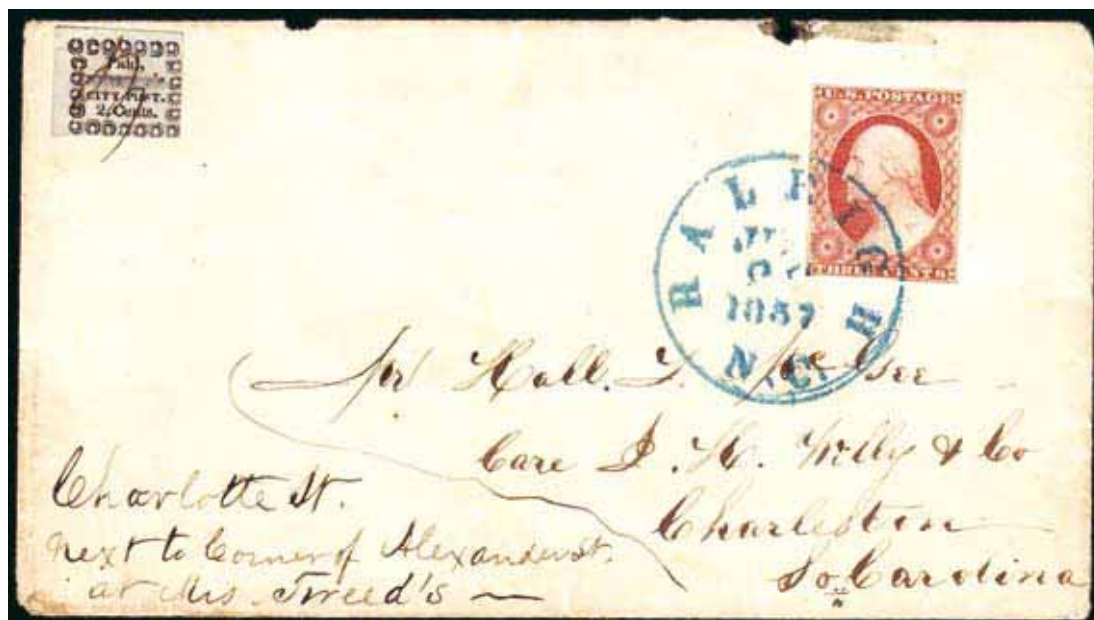 Paid,
CITY POST.
2 Cents.
U.S. POSTAGE
THREE CENTS
RALEIGH
1857
N.C.
Mr Hall. T. McGee
Care J. H. & Co
Charleston
So. Carolina
Charlotte St.
next to Corner of Alexander St.
at Mrs. Tweed's